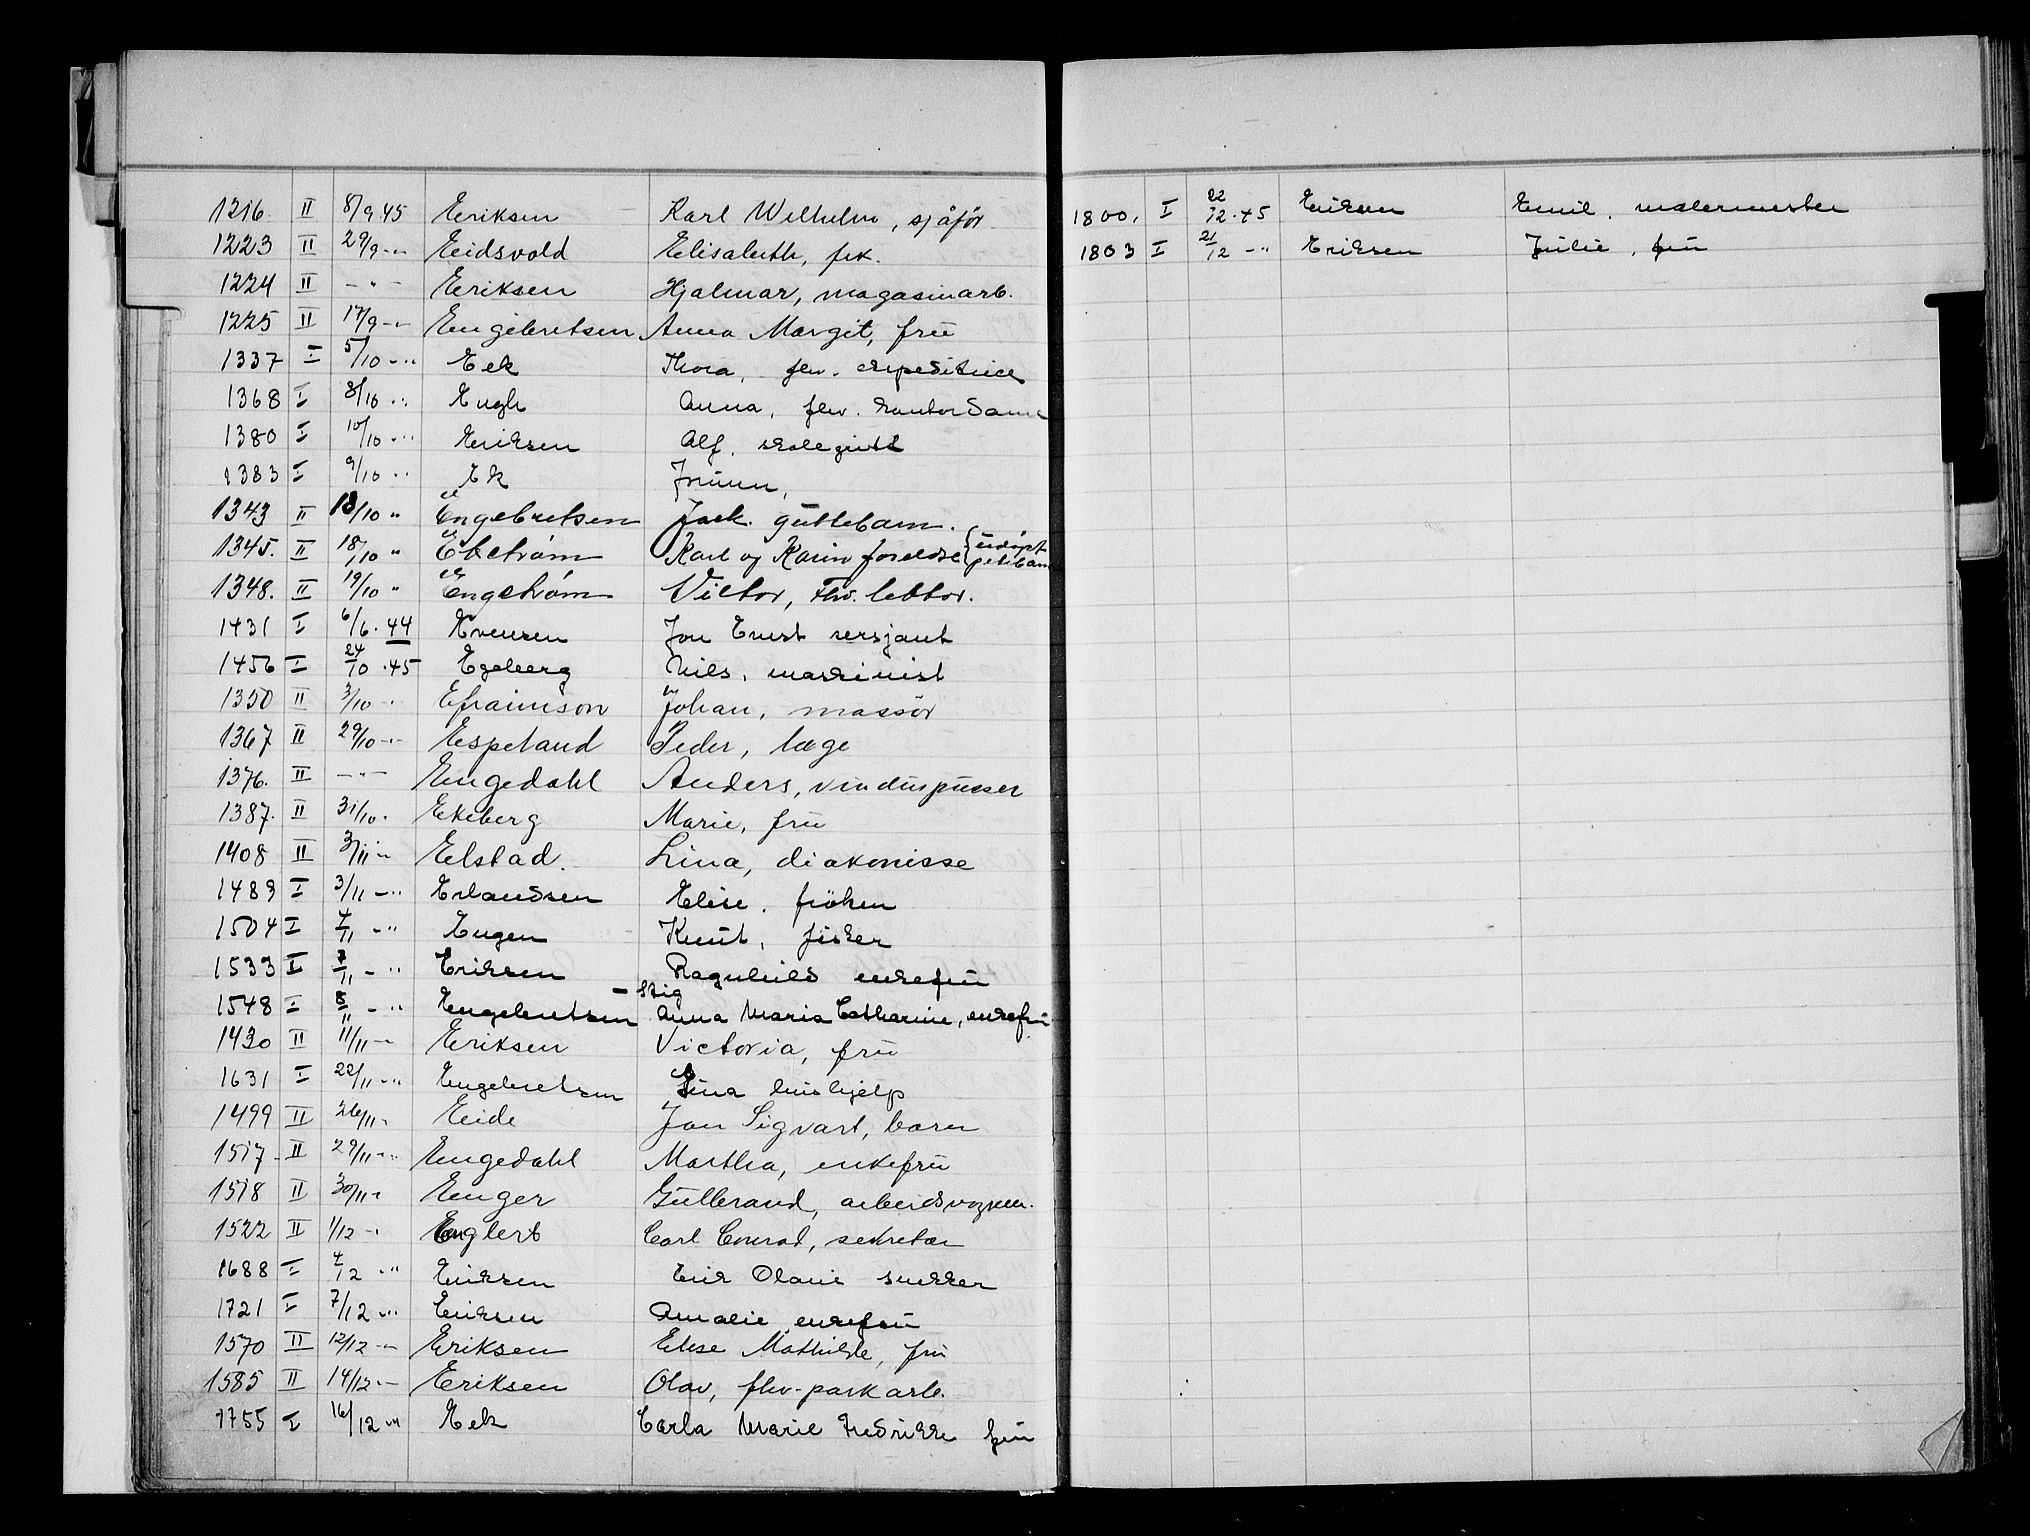 1216. II 8/9.45 Eriksen Karl Wilhelm, sjåfør
1223 II 29/9 -"- Eidsvold Elisabeth, frk.
1224 II -"- Eriksen Hjalmar, magasinarb.
1225 II 17/9 -"- Engebretsen Anna Margit, frü
1337 I 5/10 -"- Eek Thora, fhv. ekspeditrice
1368 I 8/10 -"- Engh Anna, fhv. kontordame
1380 I 10/10 -"- Eriksen Alf, skolegutt
1383 I 9/10 -"- Ek Jorunn,
1343 II 18/10 " Engebretsen Jack. guttebarn.
1345. II 18/10 " Ekstrøm Karl og Karin foreldre { udøpt pikebarn
1348. II 19/10 " Engstrøm Victor, Fhv. lektor.
1431 I 6/6.44 Evensen Jon Ernst sersjant
1456 I 24/10.45 Egeberg Nils, maskinist
1350 II 3/10 - Efraimson Johan, massör
1367 II 29/10 -"- Espeland Peder, læge
1376. II -"- Engedahl Anders, vinduspusser
1387. II 31/10. Ekeberg Marie, frü
1408 II 3/11 -"- Elstad. Lina, diakonisse
1483 I 3/11 -"- Erlandsen Elise. fröken
1504 I 4/11 -"- Engen Knut, fisker
1533 I 7/11 -"- Eriksen Ragnhild enkefrü
1548 I 8/11 -"- Engebretsen - Stig Anna Maria Catharine, enkefrü
1430 II 11/11 -"- Eriksen Victoria, frü
1631 I 22/11 -"- Engebretsen Lina hushjelp
1499 II 26/11 " Eide Jan Sigvart, barn
1517 II 29/11 -"- Engedahl Martha, enkefrü
1518 II 30/11 -"- Enger Gulbrand, arbeidsvognm.
1522 II 1/12 -" Englert Carl Conrad, sekretær
1688 I 4/12 -"- Eriksen Erik Olavie snekker
1721 I 7/12 -"- Eriksen Amalie enkefrü
1570 II 12/12 -"- Eriksen Else Mathilde, frü
1585 II 14/12 -"- Eriksen Olav, fhv. parkarb.
1755 I 16/12 -"- Eek Carla Marie Fredrikke frü
1800, I 22/12.45 Eriksen Emil, malermester
1803 I 21/12 -"- Eriksen Julie, frü